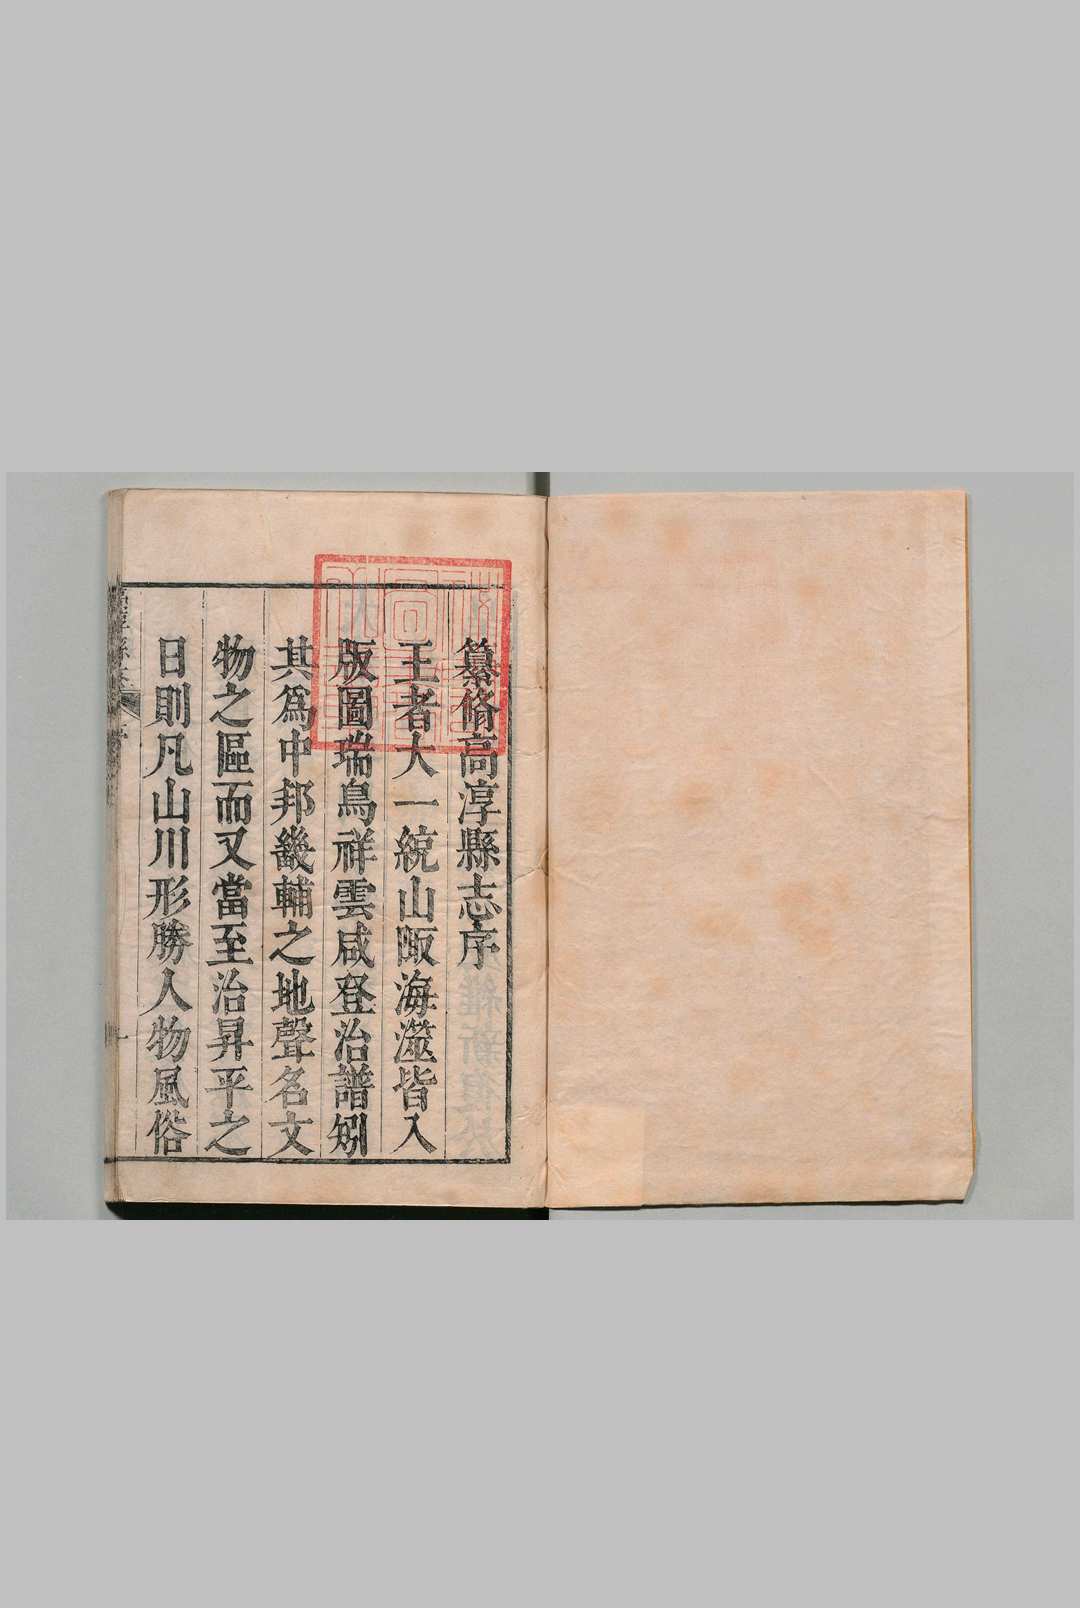 纂脩高淳縣志序
王者大一統山陬海澨皆入
版圖瑞鳥祥雲咸登治譜矧
其爲中邦畿輔之地聲名文
物之區而又當至治昇平之
日則凡山川形勝人物風俗